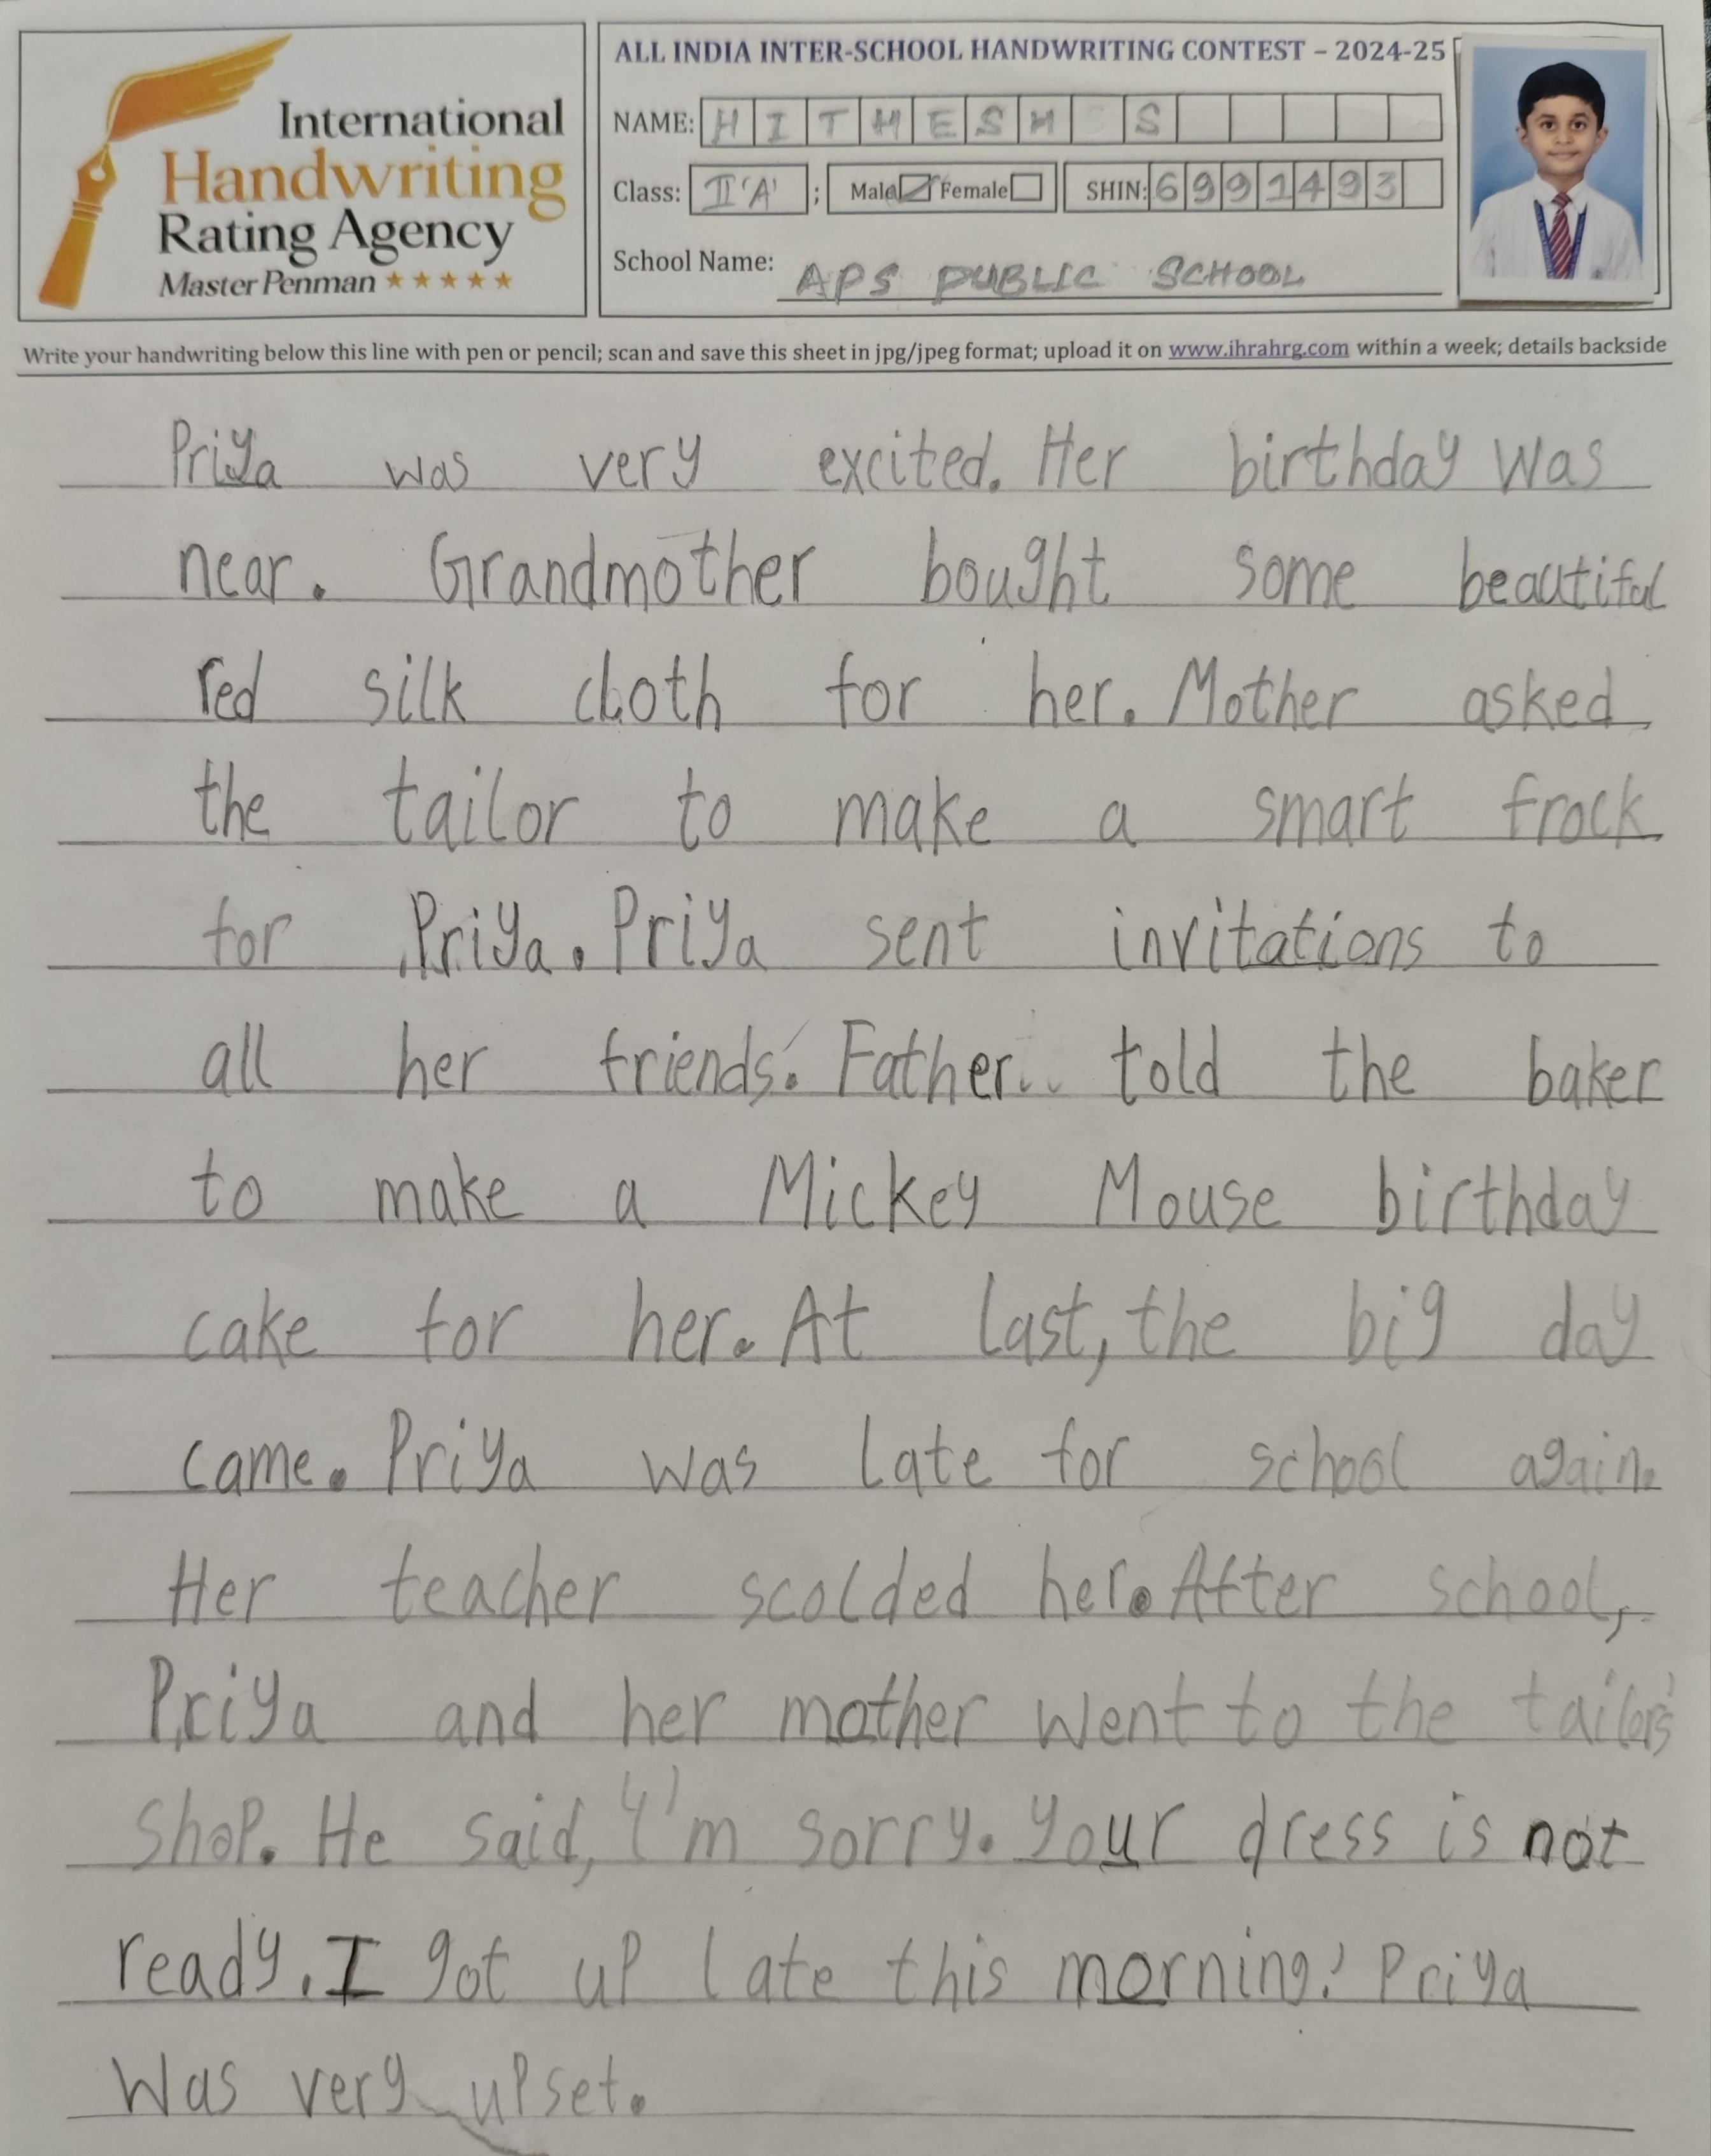 International
Handwriting
Rating Agency
Master Penman ★★★★★
ALL INDIA INTER-SCHOOL HANDWRITING CONTEST – 2024-25
NAME: HITHESH S
Class: II 'A' ; Male Female SHIN: 6991493
School Name: APS PUBLIC SCHOOL
Write your handwriting below this line with pen or pencil; scan and save this sheet in jpg/jpeg format; upload it on www.ihrahrg.com within a week; details backside
Priya was very excited. Her birthday was
near. Grandmother bought some beautiful
red silk cloth for her. Mother asked
the tailor to make a smart frock
for Priya. Priya sent invitations to
all her friends. Father told the baker
to make a Mickey Mouse birthday
cake for her. At last, the big day
came. Priya was late for school again.
Her teacher scolded her. After school,
Priya and her mother went to the tailor's
shop. He said, 'I'm sorry. Your dress is not
ready. I got up late this morning.' Priya
was very upset.